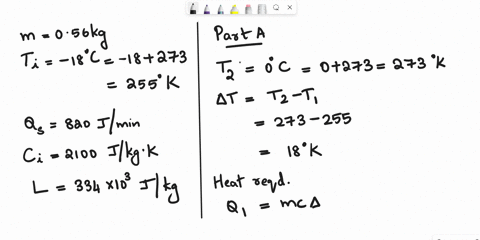 m = 0.56kg
Ti = -18°C = -18+273
= 255°K
Qs = 820 J/min
Ci = 2100 J/kg·K
L = 334 ×10³ J/kg
Part A
T2 = 0°C = 0+273 = 273°K
ΔT = T2-T1
= 273-255
= 18°K
Heat reqd.
Q1 = mcΔ